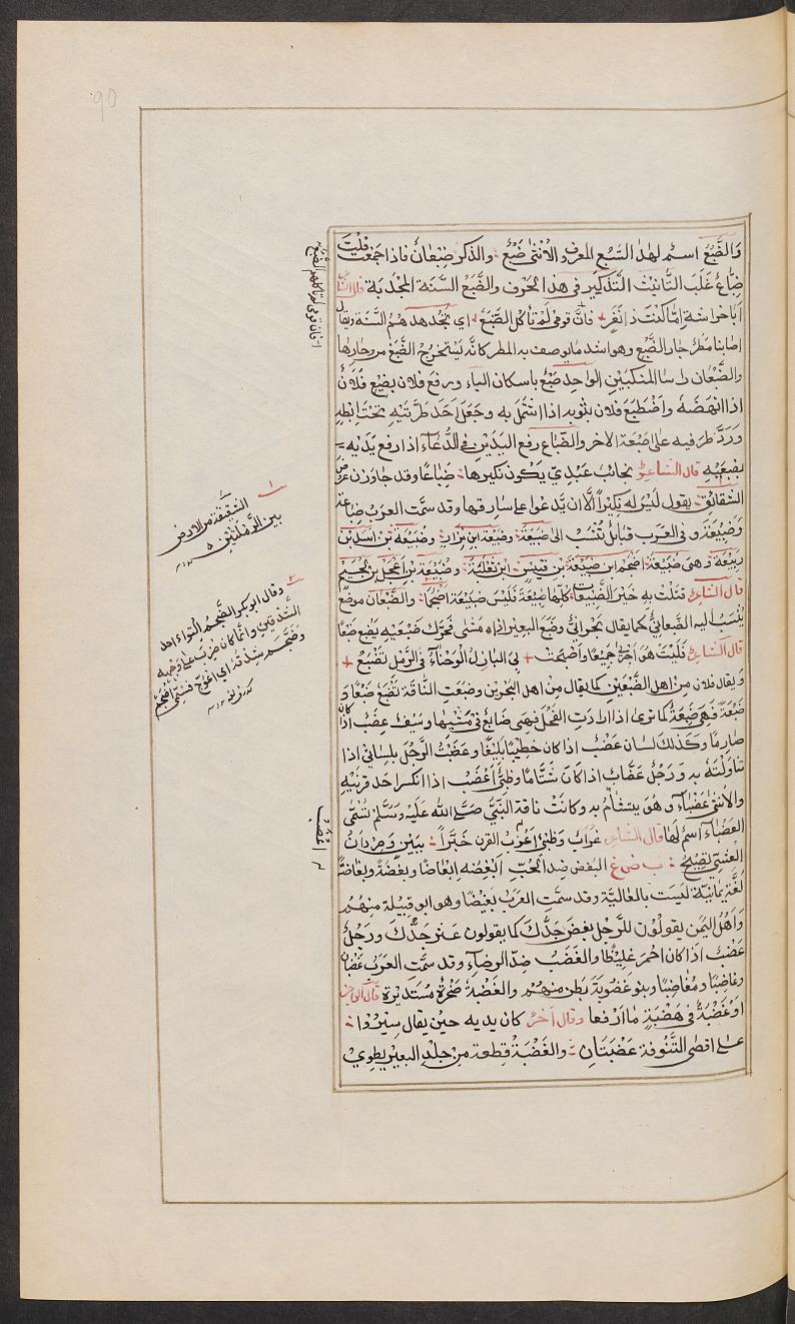 90
والضَّبُع اسم لهذا السَّبُع المعروف الأنثى ضَبُع والذكر ضِبْعان فاذا جمعت قلت
ضِباع غَلَبَ التَّأنيث التَّذكير في هذا الحرف والضَّبُع السَّنَة المُجْدِبَة قال الشاعر
أبا خراشة إمّا كنت ذا نَفَرٍ فانّ قومي لم تأكل الضَّبُعُ اي تُجْهدهم السَّنَة ويقال
اصابنا مطر جارّ الضَّبُع وهو اشد ما يوصف به المطر كانّه يستخرج الضَّبُع من وجارها
والضَّبْعان راسا المنكبين الواحد ضَبْع باسكان الباء ورفع فلان بضَبْع فلان
اذا انهضه واضطبع فلان بثوبه اذا اشتمل به وجعل احد طرّتيه تحت ابطه
ورَدَّ طرفيه على ضَبْعه الاخر والضِّباع رفع اليدين في الدُّعاء اذا رفع يديه
بضَبْعَيه قال الشاعر نجائب عبدي يكون نكيرها ضِباعًا وقد جاوزن عرض
الشقائق يقول ليس له نكير الّا ان يدعوا على سارقها وقد سمّت العرب ضِباعة
وضُبَيْعَة وفي العرب قبائل تُنْسَب الى ضُبَيْعَة ضُبَيْعَة بن نزار وضُبَيْعَة بن اسد بن
ربيعة وهي ضُبَيْعَة اضجم ابن ضُبَيْعَة بن قيس ابن ثعلبة وضُبَيْعَة بن عجل بن لُجَيم
قال الشاعر قتلت به خير الضُّبيعات كلّها ضُبَيْعَة قيس لا ضُبَيْعَة اضجما والضَّبْعان موضع
يُنْسَب اليه الضَّبعانيّ كما يقال بحرانيّ وضَبَعَ البعير اذا مشى فحرّك ضَبْعَيه يضبع ضَبْعًا
قال الشاعر فليت لهم أجري جميعًا واصبحت بي البازل الوجناء في الرمل تضبع
ويقال فلان من اهل الضَّبْعَين كما يقال من اهل البحرين وضَبِعَت النَّاقة تَضْبَع ضَبَعًا و
ضَبَعَة فهي ضَبِعَة كما ترى اذا ارادت الفحل فهي ضابع في مشيها وسيف عضب اذا كان
صارما وكذلك لسان عَضْب اذا كان خطيبًا بليغًا وعَضَبْتُ الرَّجُل بلساني اذا
تناولته به ورجل عَضّاب اذا كان شتّامًا وظبي أعْضَب اذا انكسر احد قرنيه
والانثى عَضْباء وهو يتشاءم به وكانت ناقة النبيّ صلى الله عليه وسلم تُسَمّى
العضباء اسم لها قال الشاعر غراب وظبي أعضب القرن خبّرا ببين وصردان
العشي تصيح ب ض غ البغض ضد الحبّ ابغضه إبغاضا وبغضة وبغاضة
لغة يمانية ليست بالعالية وقد سمّت العرب بغيضا وهو ابو قبيلة منهم
واهل اليمن يقولون للرجل بغض جدّك كما يقولون عثر جدّك ورجل
غَضْب اذا كان احمر غليظا والغَضَب ضدّ الرضاء وقد سمّت العرب غَضْبان
وغاضبا ومُغاضِبا وبنو غضوبة بطن منهم والغَضْبَة صخرة مستديرة قال الراجز
او غَضْبَة في هَضْبَةٍ ما ارفعا وقال آخر كان يديه حين يقال سيروا
على اقصى التَّنُوفة غَضْبَتان والغَضْبَة قطعة من جلد البعير يطوى
فان قومي لم تأكلهم الضبع
١ الشقيقة من الارض
بين الرملتين
٢ وقال ابو بكر الضَّجَم التواء احد
الشدقين وانما كان ضرب على وجهه
وضجم شدقه اي اعوجّ فسمّي اضجم
أعْضَب